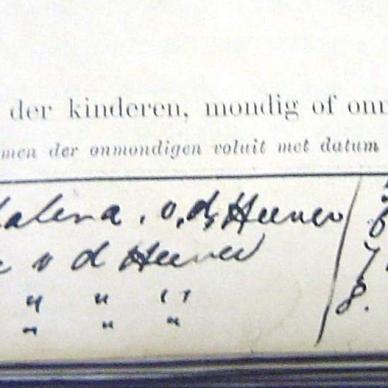 der kinderen, mondig of onm
men der onmondigen voluit met datum
alena. v. d. Heever
v d Heever
" " "
" " "
7
8.